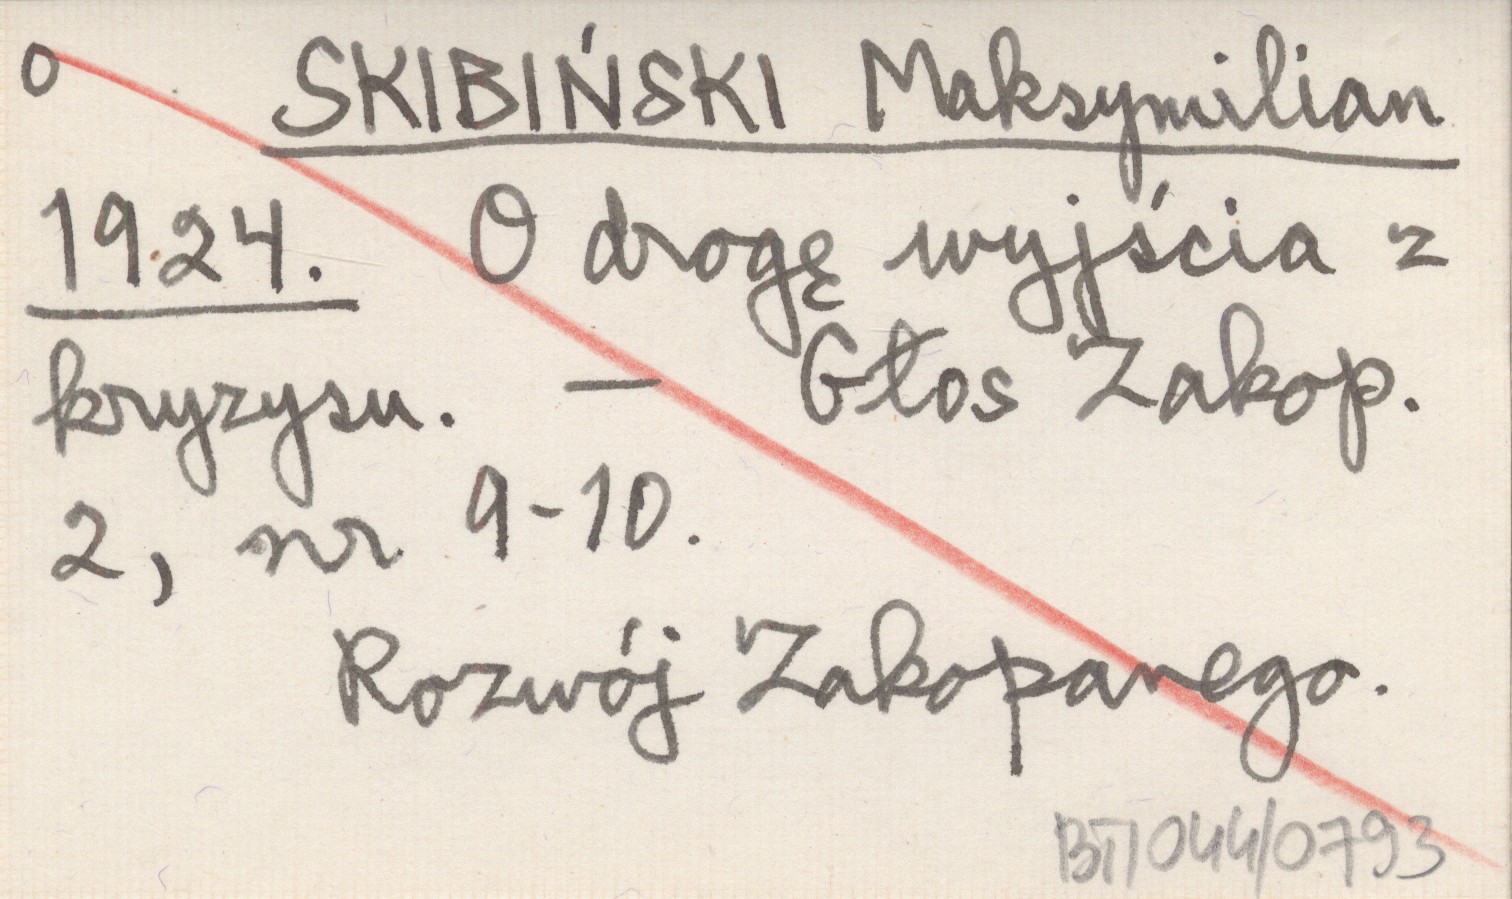 o SKIBIŃSKI Maksymilian
1924. O drogę wyjścia z
kryzysu. — Głos Zakop.
2, nr 9-10.
Rozwój Zakopanego.
BT/044/0793